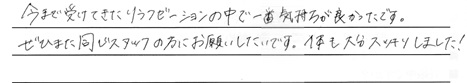 今まで受けてきたリラクゼーションの中で一番気持ちが良かったです。
ぜひまた同じスタッフの方にお願いしたいです。体も大分スッキリしました!